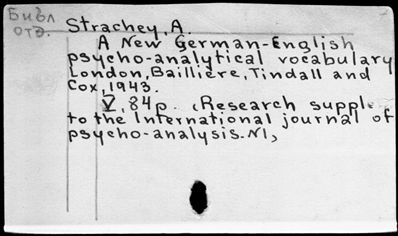 Библ
отд.
Strachey, A.
A New German-English
psycho-analytical vocabulary
London, Bailliere, Tindall and
Cox, 1943.
V, 84p. (Research supple
to the International journal of
psycho-analysis. N1,